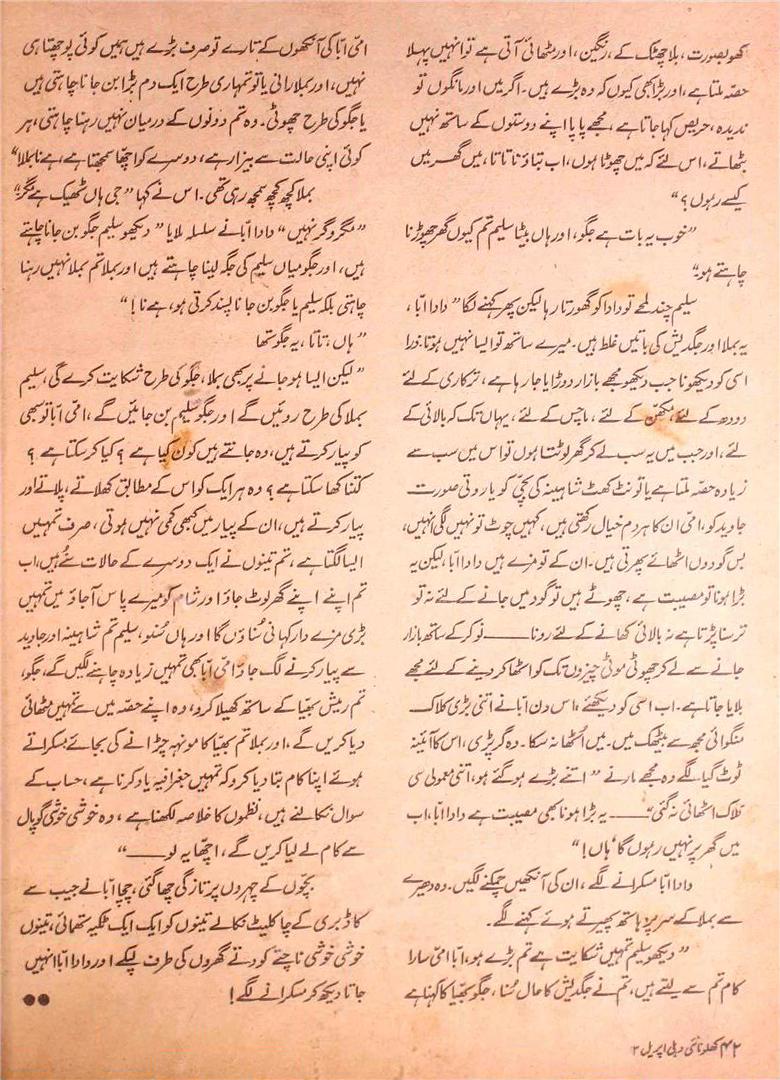 خوبصورت، بلا چھٹک کے، رنگین، اور مٹھائی آتی ہے تو انہیں پہلا
حصہ ملتا ہے، اور بڑا بھی کیوں کہ وہ بڑے ہیں۔ اگر میں اور مانگوں تو
ندیدہ، حریص کہا جاتا ہے، مجھے پاپا اپنے دوستوں کے ساتھ نہیں
بٹھاتے، اس لئے کہ میں چھوٹا ہوں، اب بتاؤ نا تاتا، میں گھر میں
کیسے رہوں؟“
”خوب یہ بات ہے جگو، اور ہاں بیٹا سلیم تم کیوں گھر چھوڑنا
چاہتے ہو۔“
سلیم چند لمحے تو دادا کو گھورتا رہا لیکن پھر کہنے لگا ”دادا ابّا،
یہ بملا اور جگدیش کی باتیں غلط ہیں۔ میرے ساتھ تو ایسا نہیں ہوتا ذرا
اسی کو دیکھو نا جب دیکھو مجھے بازار دوڑایا جا رہا ہے، ترکاری کے لئے
دودھ کے لئے، مکھن کے لئے، ماچس کے لئے، یہاں تک کہ بالائی کے
لئے، اور جب میں یہ سب لے کر گھر لوٹتا ہوں تو اس میں سب سے
زیادہ حصہ ملتا ہے یا تو نٹ کھٹ شاہینہ کی بچّی کو یا روتی صورت
جاوید کو، امّی ان کا ہر دم خیال رکھتی ہیں، کہیں چوٹ تو نہیں لگی انہیں،
بس گودوں اٹھائے پھرتی ہیں۔ ان کے تو مزے ہیں دادا ابّا، لیکن یہ
بڑا ہونا تو مصیبت ہے، چھوٹے ہیں تو گود میں جانے کے لئے نہ تو
ترسنا پڑتا ہے نہ بالائی کھانے کے لئے رونا ــــــ نوکر کے ساتھ بازار
جانے سے لے کر چھوٹی موٹی چیزوں تک کو اٹھا کر دینے کے لئے مجھے
بلایا جاتا ہے۔ اب اسی کو دیکھئے، اس دن ابّا نے اتنی بڑی کلاک
منگوائی مجھ سے بیٹھک میں۔ میں اُٹھا نہ سکا۔ وہ گر پڑی، اس کا آئینہ
ٹوٹ گیا لگے وہ مجھے مارنے ”اتنے بڑے ہو گئے ہو، اتنی معمولی سی
کلاک اٹھائی نہ گئی“ ــــــ یہ بڑا ہونا بھی مصیبت ہے دادا ابّا، اب
میں گھر پر نہیں رہوں گا، ہاں!“
دادا ابّا مسکرانے لگے، ان کی آنکھیں چمکنے لگیں۔ وہ دھیرے
سے بملا کے سر پر ہاتھ پھیرتے ہوئے کہنے لگے۔
”دیکھو سلیم تمہیں شکایت ہے تم بڑے ہو، ابّا امّی سارا
کام تم سے لیتے ہیں، تم نے جگدیش کا حال سُنا، جگو بھیّا کا کہنا ہے
امّی ابّا کی آنکھوں کے تارے تو صرف بڑے ہیں ہمیں کوئی پوچھتا ہی
نہیں، اور بملا رانی یا تو تمہاری طرح ایک دم بڑا بن جانا چاہتی ہیں
یا جگو کی طرح چھوٹی۔ وہ تم دونوں کے درمیان نہیں رہنا چاہتی، ہر
کوئی اپنی حالت سے بیزار ہے، دوسرے کو اچھا سمجھتا ہے، ہے نا بملا“
بملا کچھ کچھ سمجھ رہی تھی۔ اس نے کہا ”جی ہاں ٹھیک ہے مگر“
”مگر وگر نہیں“ دادا ابّا نے سلسلہ ملایا ”دیکھو سلیم جگو بن جانا چاہتے
ہیں، اور جگو میاں سلیم کی جگہ لینا چاہتے ہیں اور بملا تم بملا نہیں رہنا
چاہتی بلکہ سلیم یا جگو بن جانا پسند کرتی ہو، ہے نا!“
”ہاں، تاتا، یہ جگو تھا
”لیکن ایسا ہو جانے پر بھی بملا، جگو کی طرح شکایت کرے گی، سلیم
بملا کی طرح روئیں گے اور جگو سلیم بن جائیں گے، امّی ابّا تو سبھی
کو پیار کرتے ہیں، وہ جانتے ہیں کون کیا ہے؟ کیا کر سکتا ہے؟
کتنا کھا سکتا ہے؟ وہ ہر ایک کو اس کے مطابق کھلاتے، پلاتے اور
پیار کرتے ہیں، ان کے پیار میں کبھی کمی نہیں ہوتی، صرف تمہیں
ایسا لگتا ہے، تم تینوں نے ایک دوسرے کے حالات سُنے ہیں، اب
تم اپنے اپنے گھر لوٹ جاؤ اور شام کو میرے پاس آ جاؤ میں تمہیں
بڑی مزے دار کہانی سُناؤں گا اور ہاں سُنو، سلیم تم شاہینہ اور جاوید
سے پیار کرنے لگ جاؤ امّی ابّا بھی تمہیں زیادہ چاہنے لگیں گے، جگو،
تم رمیش بھیّا کے ساتھ کھیلا کرو، وہ اپنے حصہ میں سے تمہیں مٹھائی
دیا کریں گے، اور بملا تم بھیّا کا مونہہ چڑانے کی بجائے مسکراتے
ہوئے اپنا کام بتا دیا کرو کہ تمہیں جغرافیہ یاد کرنا ہے، حساب کے
سوال نکالنے ہیں، نظموں کا خلاصہ لکھنا ہے، وہ خوشی خوشی گوپال
سے کام لے لیا کریں گے، اچھا یہ لو ــــــ“
بچّوں کے چہروں پر تازگی چھا گئی، چچا ابّا نے جیب سے
کاڈبری کے چاکلیٹ نکالے تینوں کو ایک ایک ٹکیہ تھمائی، تینوں
خوشی خوشی ناچتے کودتے گھروں کی طرف لپکے اور دادا ابّا انہیں
جاتا دیکھ کر مسکرانے لگے!
۴۲ کھلونا نئی دہلی اپریل ۷۳